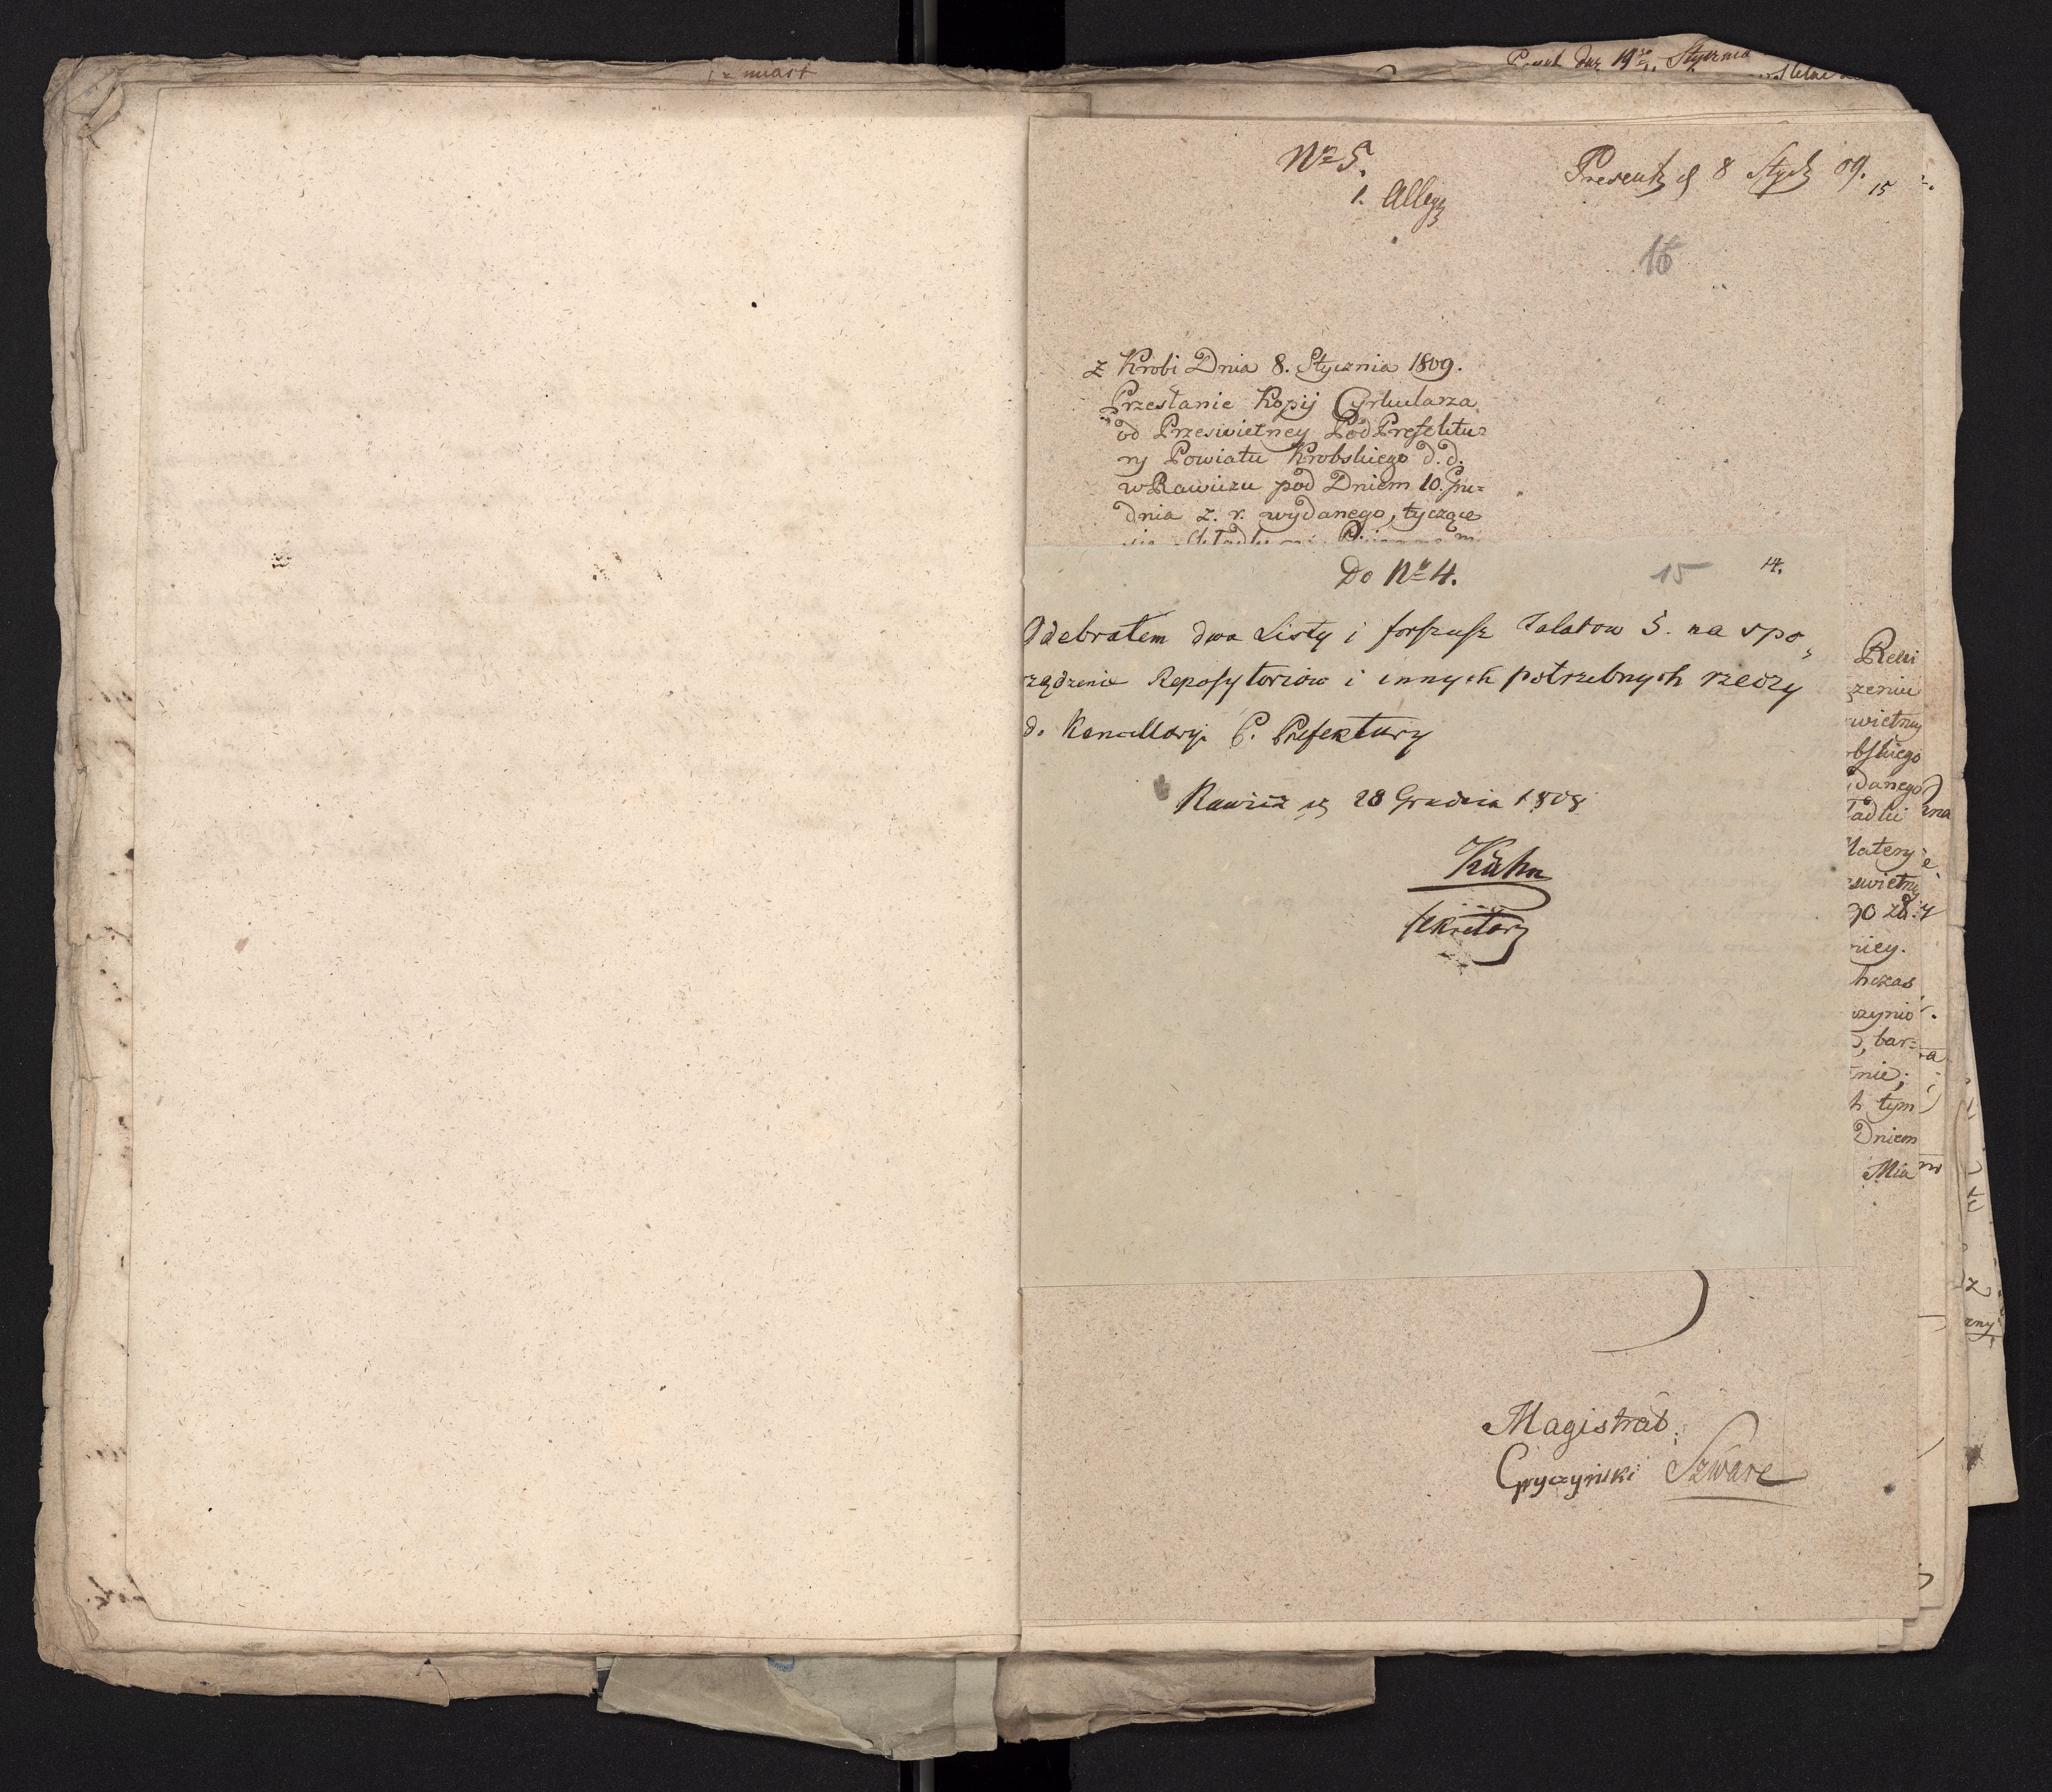 miast
dnia 19 Stycznia
No 5.
1. Alleg
Presentz d 8 Stycz 09.
15
16
z Krobi Dnia 8. Stycznia 1809.
Przesłanie Kopij Cyrkularza
od Przeswietney PodPrefektu=
ry Powiatu Krobskiego d. d.
w Rawiczu pod Dniem 10. Gru=
dnia z. r. wydanego, tyczące
Do No 4.
15
14.
Odebrałem dwa Listy i forszusz Talarow 5. na spo„
rządzenie Reposytoriow i innych potrzebnych rzeczy
do Kancellaryi P. Prefektury
Rawicz d 28 Grudnia 1808
Kühn
sekretarz
zeniu
wietney
obskiego
danego
ładki
Matery
swietney
go zd.
niey.
hczas
czynio
, bar=
nie;
h tym
Dniem
Mia
Magistrat.
Gryczyński Szwarc